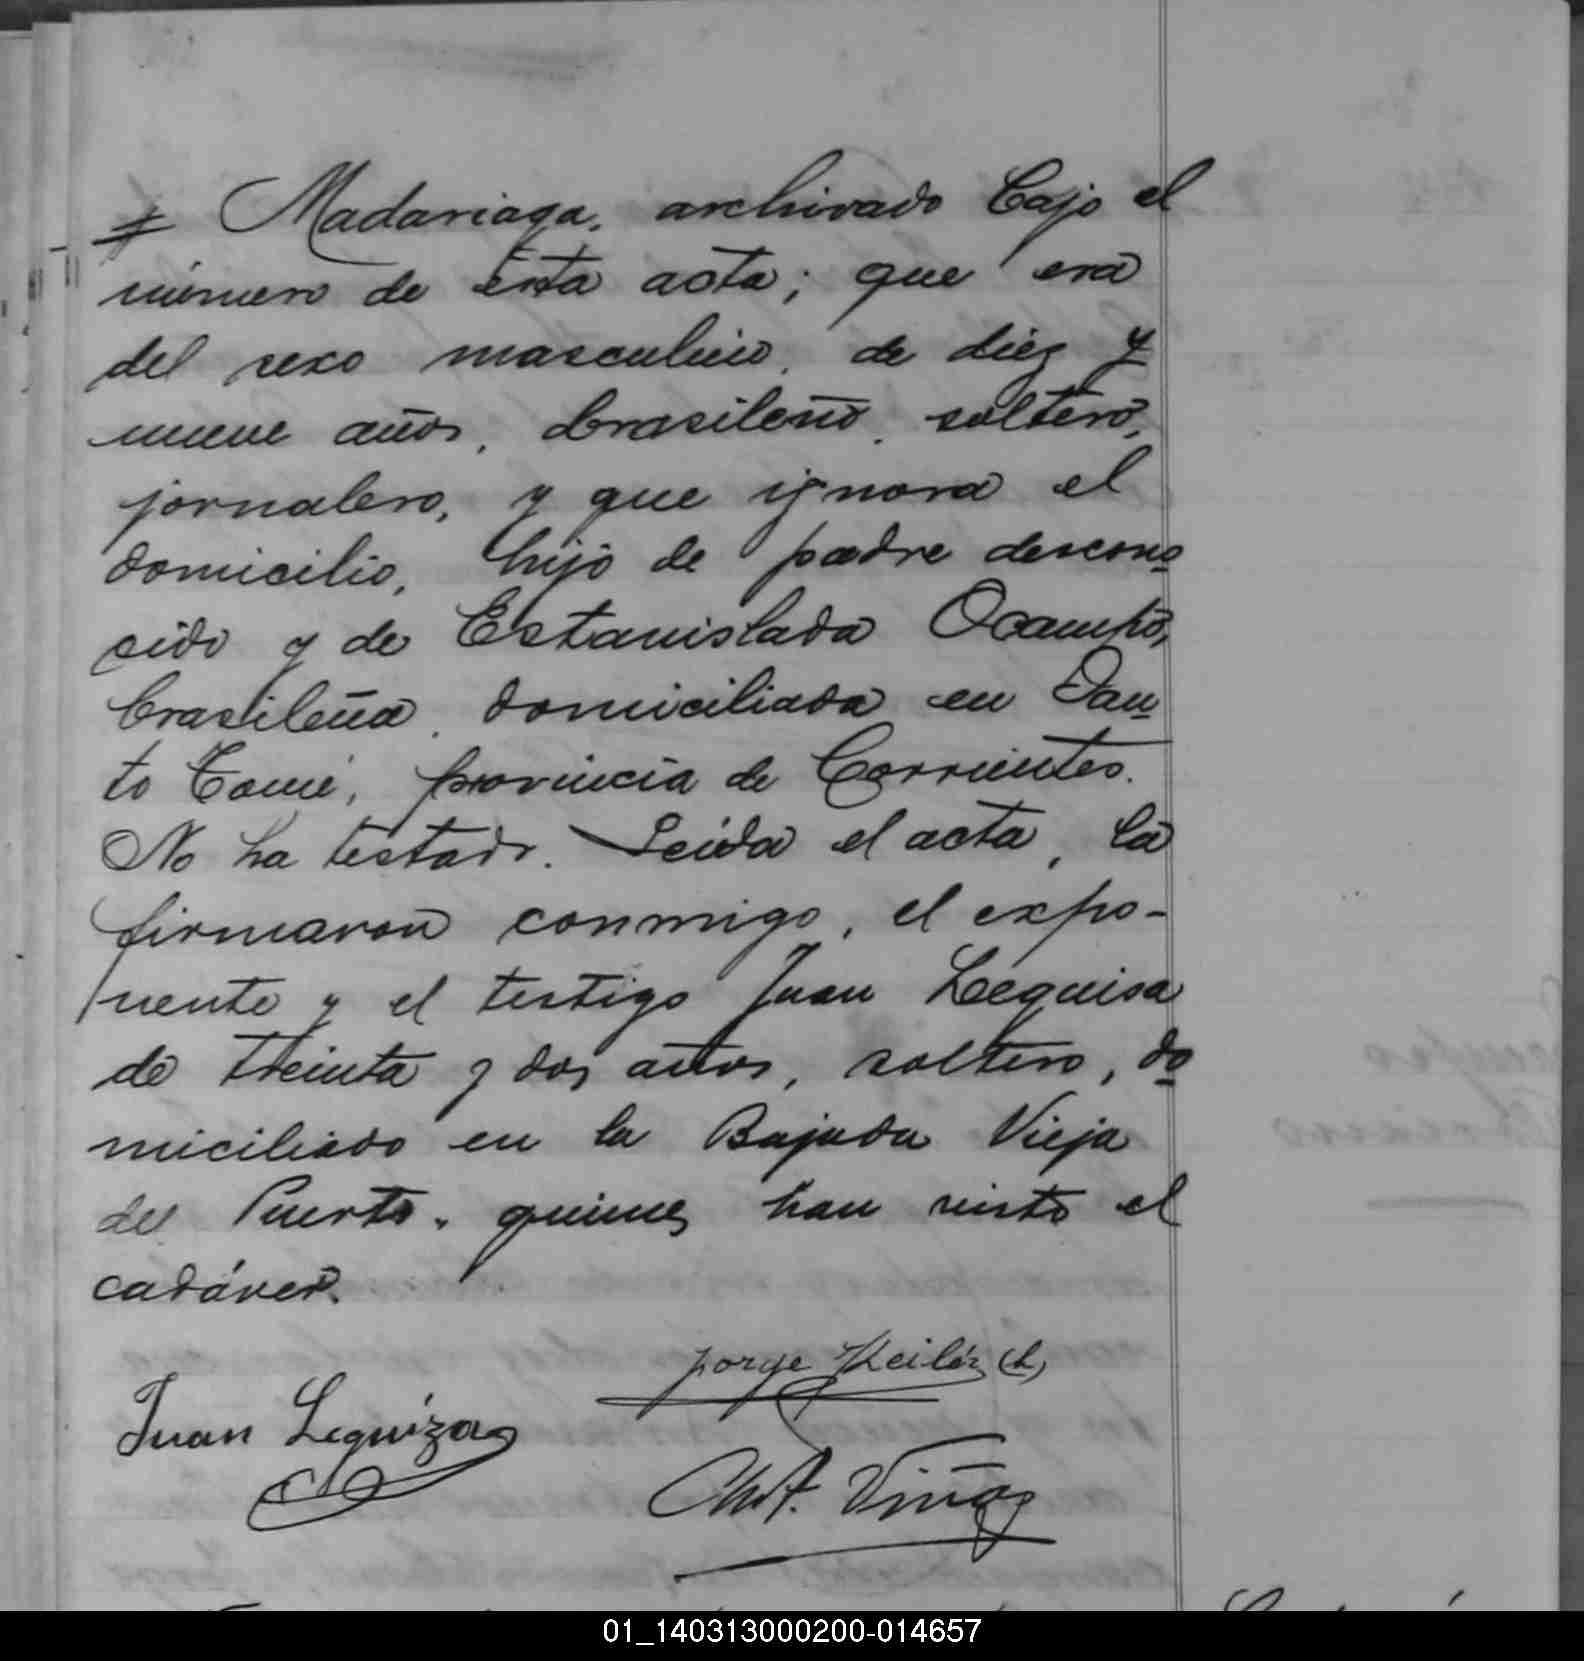 Madariaga, archivado bajo el
número de esta acta; que era
del sexo masculino, de diez y
nueve años, brasileño, soltero,
jornalero, y que ignora el
domicilio, hijo de padre descono
cido y de Estanislada Ocampo,
brasileña, domiciliada en San
to Tomé, provincia de Corrientes.
No ha testado. Leída el acta, la
firmaron conmigo, el expo-
nente y el testigo Juan Leguisa
de treinta y dos años, soltero, do
miciliado en la Bajada Vieja
del Puerto, quienes han visto el
cadáver.
Jorge (h)
Juan Leguiza
Viñas
01_140313000200-014657